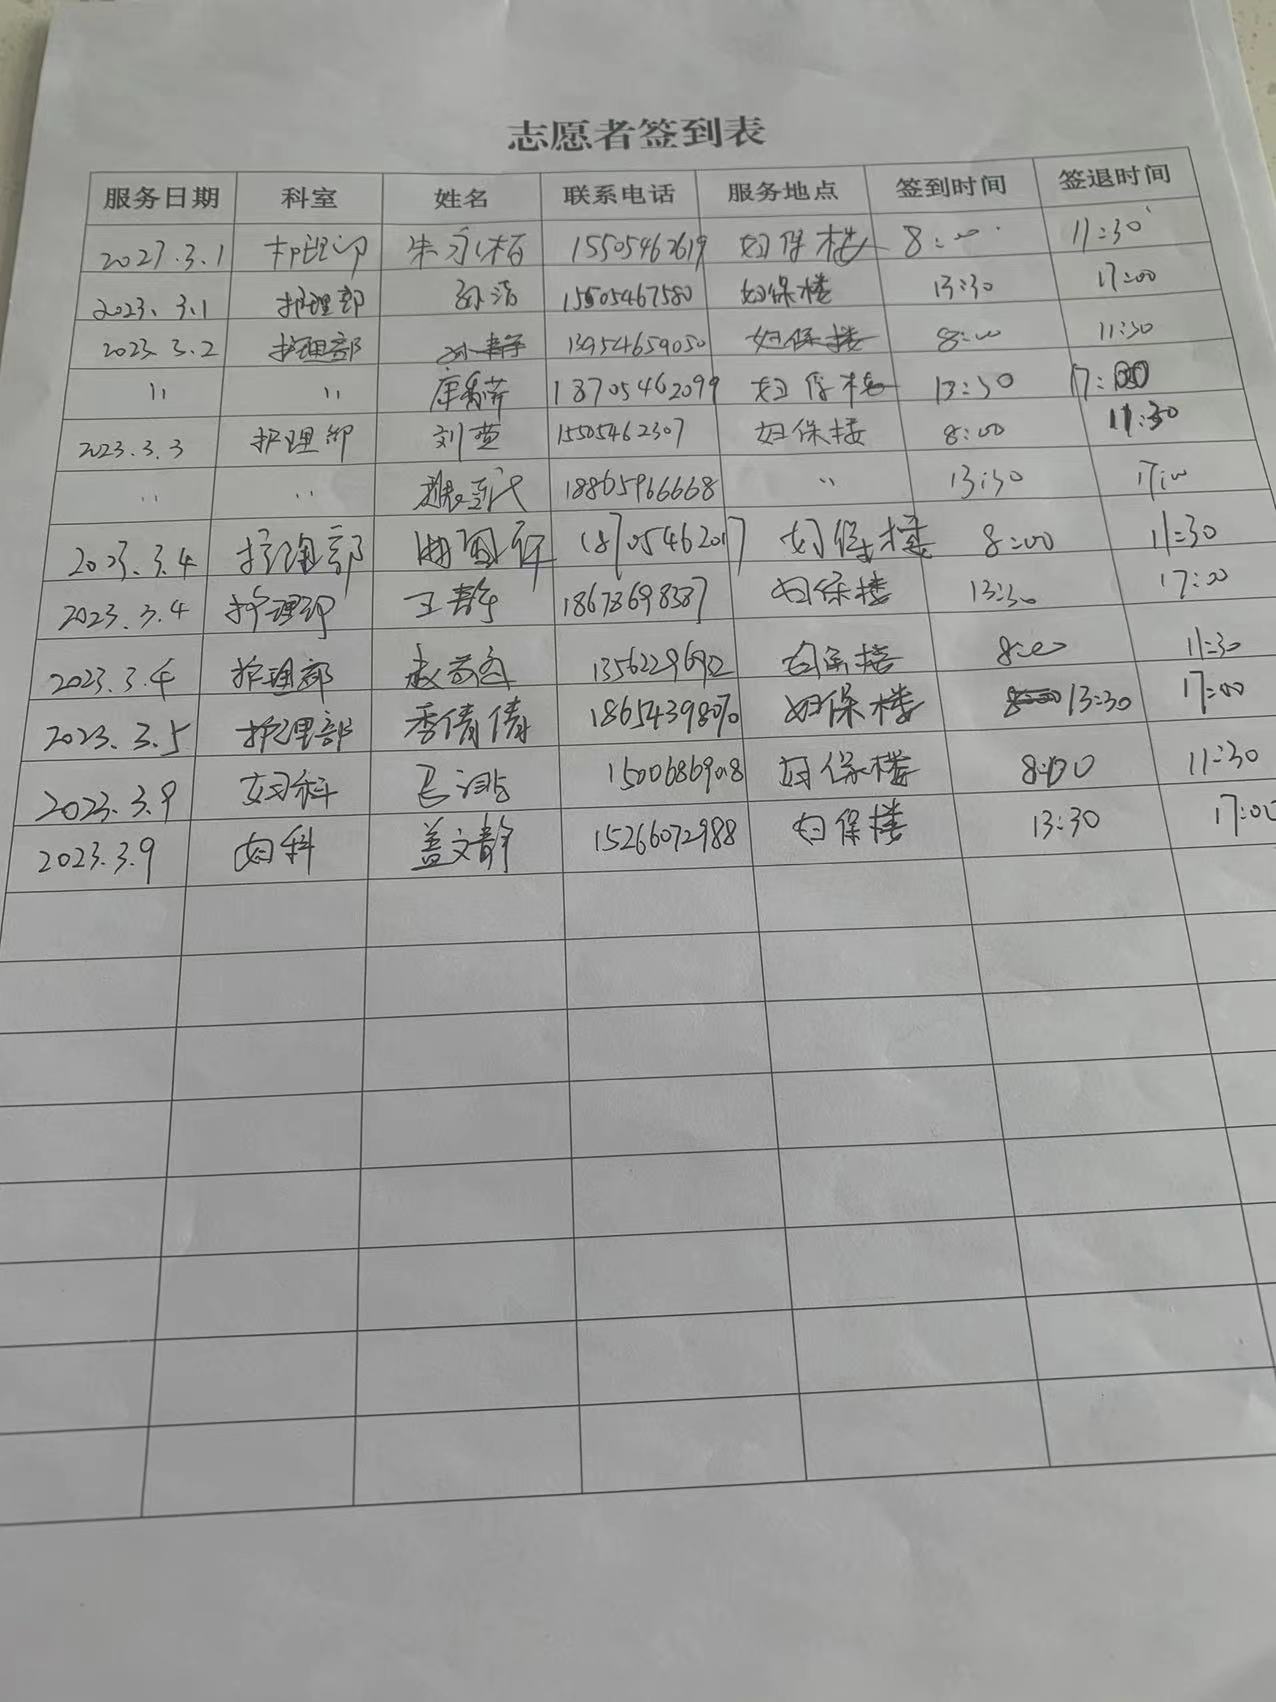 志愿者签到表
服务日期 科室 姓名 联系电话 服务地点 签到时间 签退时间
2023.3.1 护理部 朱永梅 15505462619 妇保楼 8:00 11:30
2023.3.1 护理部 孙洁 15505467580 妇保楼 13:30 17:00
2023.3.2 护理部 孙静 13954659050 妇保楼 8:00 11:30
" " 康 18705462099 妇保楼 13:30 17:00
2023.3.3 护理部 刘 15505462307 妇保楼 8:00 11:30
" " 18865966668 " 13:30 17:00
2023.3.4 护理部 18705462017 妇保楼 8:00 11:30
2023.3.4 护理部 王静 18678698587 妇保楼 13:30 17:00
2023.3.4 护理部 妇保楼 8:00 11:30
2023.3.5 护理部 季倩倩 妇保楼 13:30 17:00
2023.3.9 妇科 妇保楼 8:00 11:30
2023.3.9 妇科 盖文静 15266072988 妇保楼 13:30 17:00